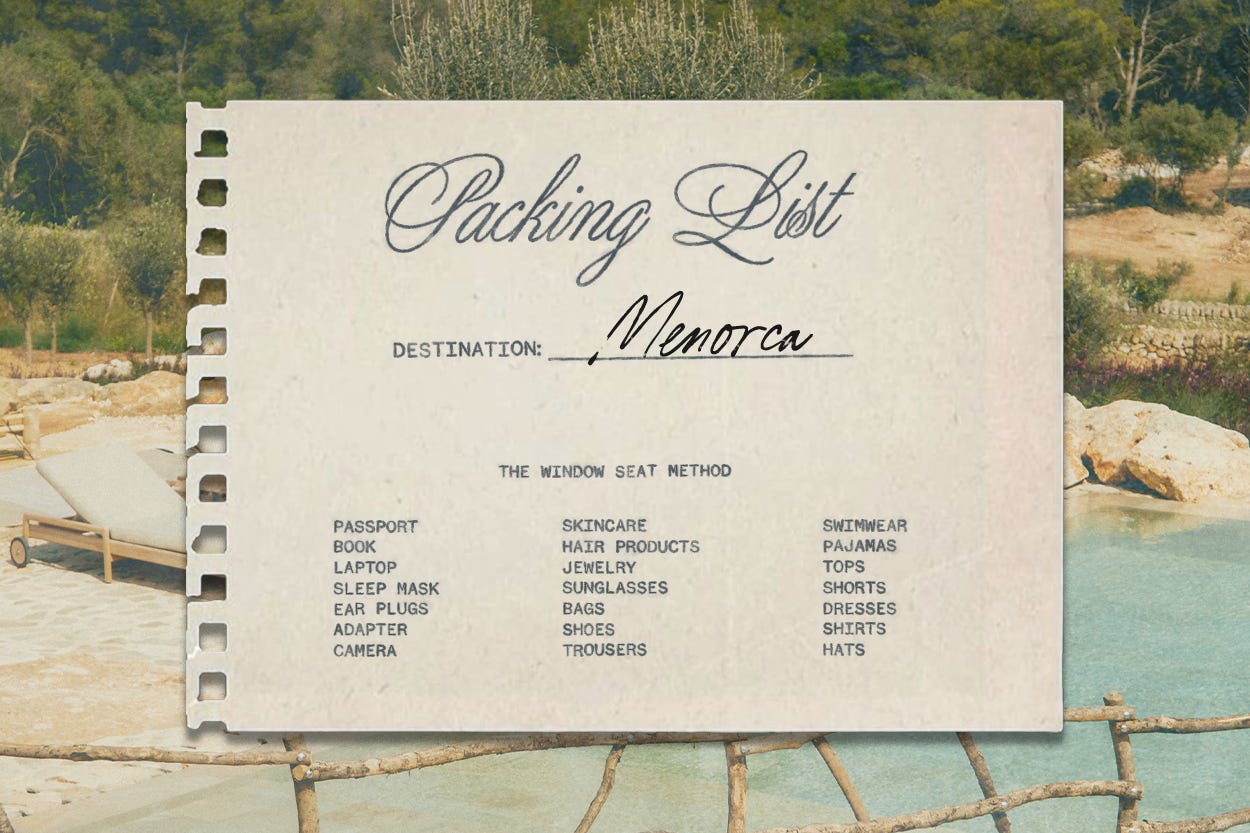 Packing List
DESTINATION: Menorca
THE WINDOW SEAT METHOD
PASSPORT
BOOK
LAPTOP
SLEEP MASK
EAR PLUGS
ADAPTER
CAMERA
SKINCARE
HAIR PRODUCTS
JEWELRY
SUNGLASSES
BAGS
SHOES
TROUSERS
SWIMWEAR
PAJAMAS
TOPS
SHORTS
DRESSES
SHIRTS
HATS